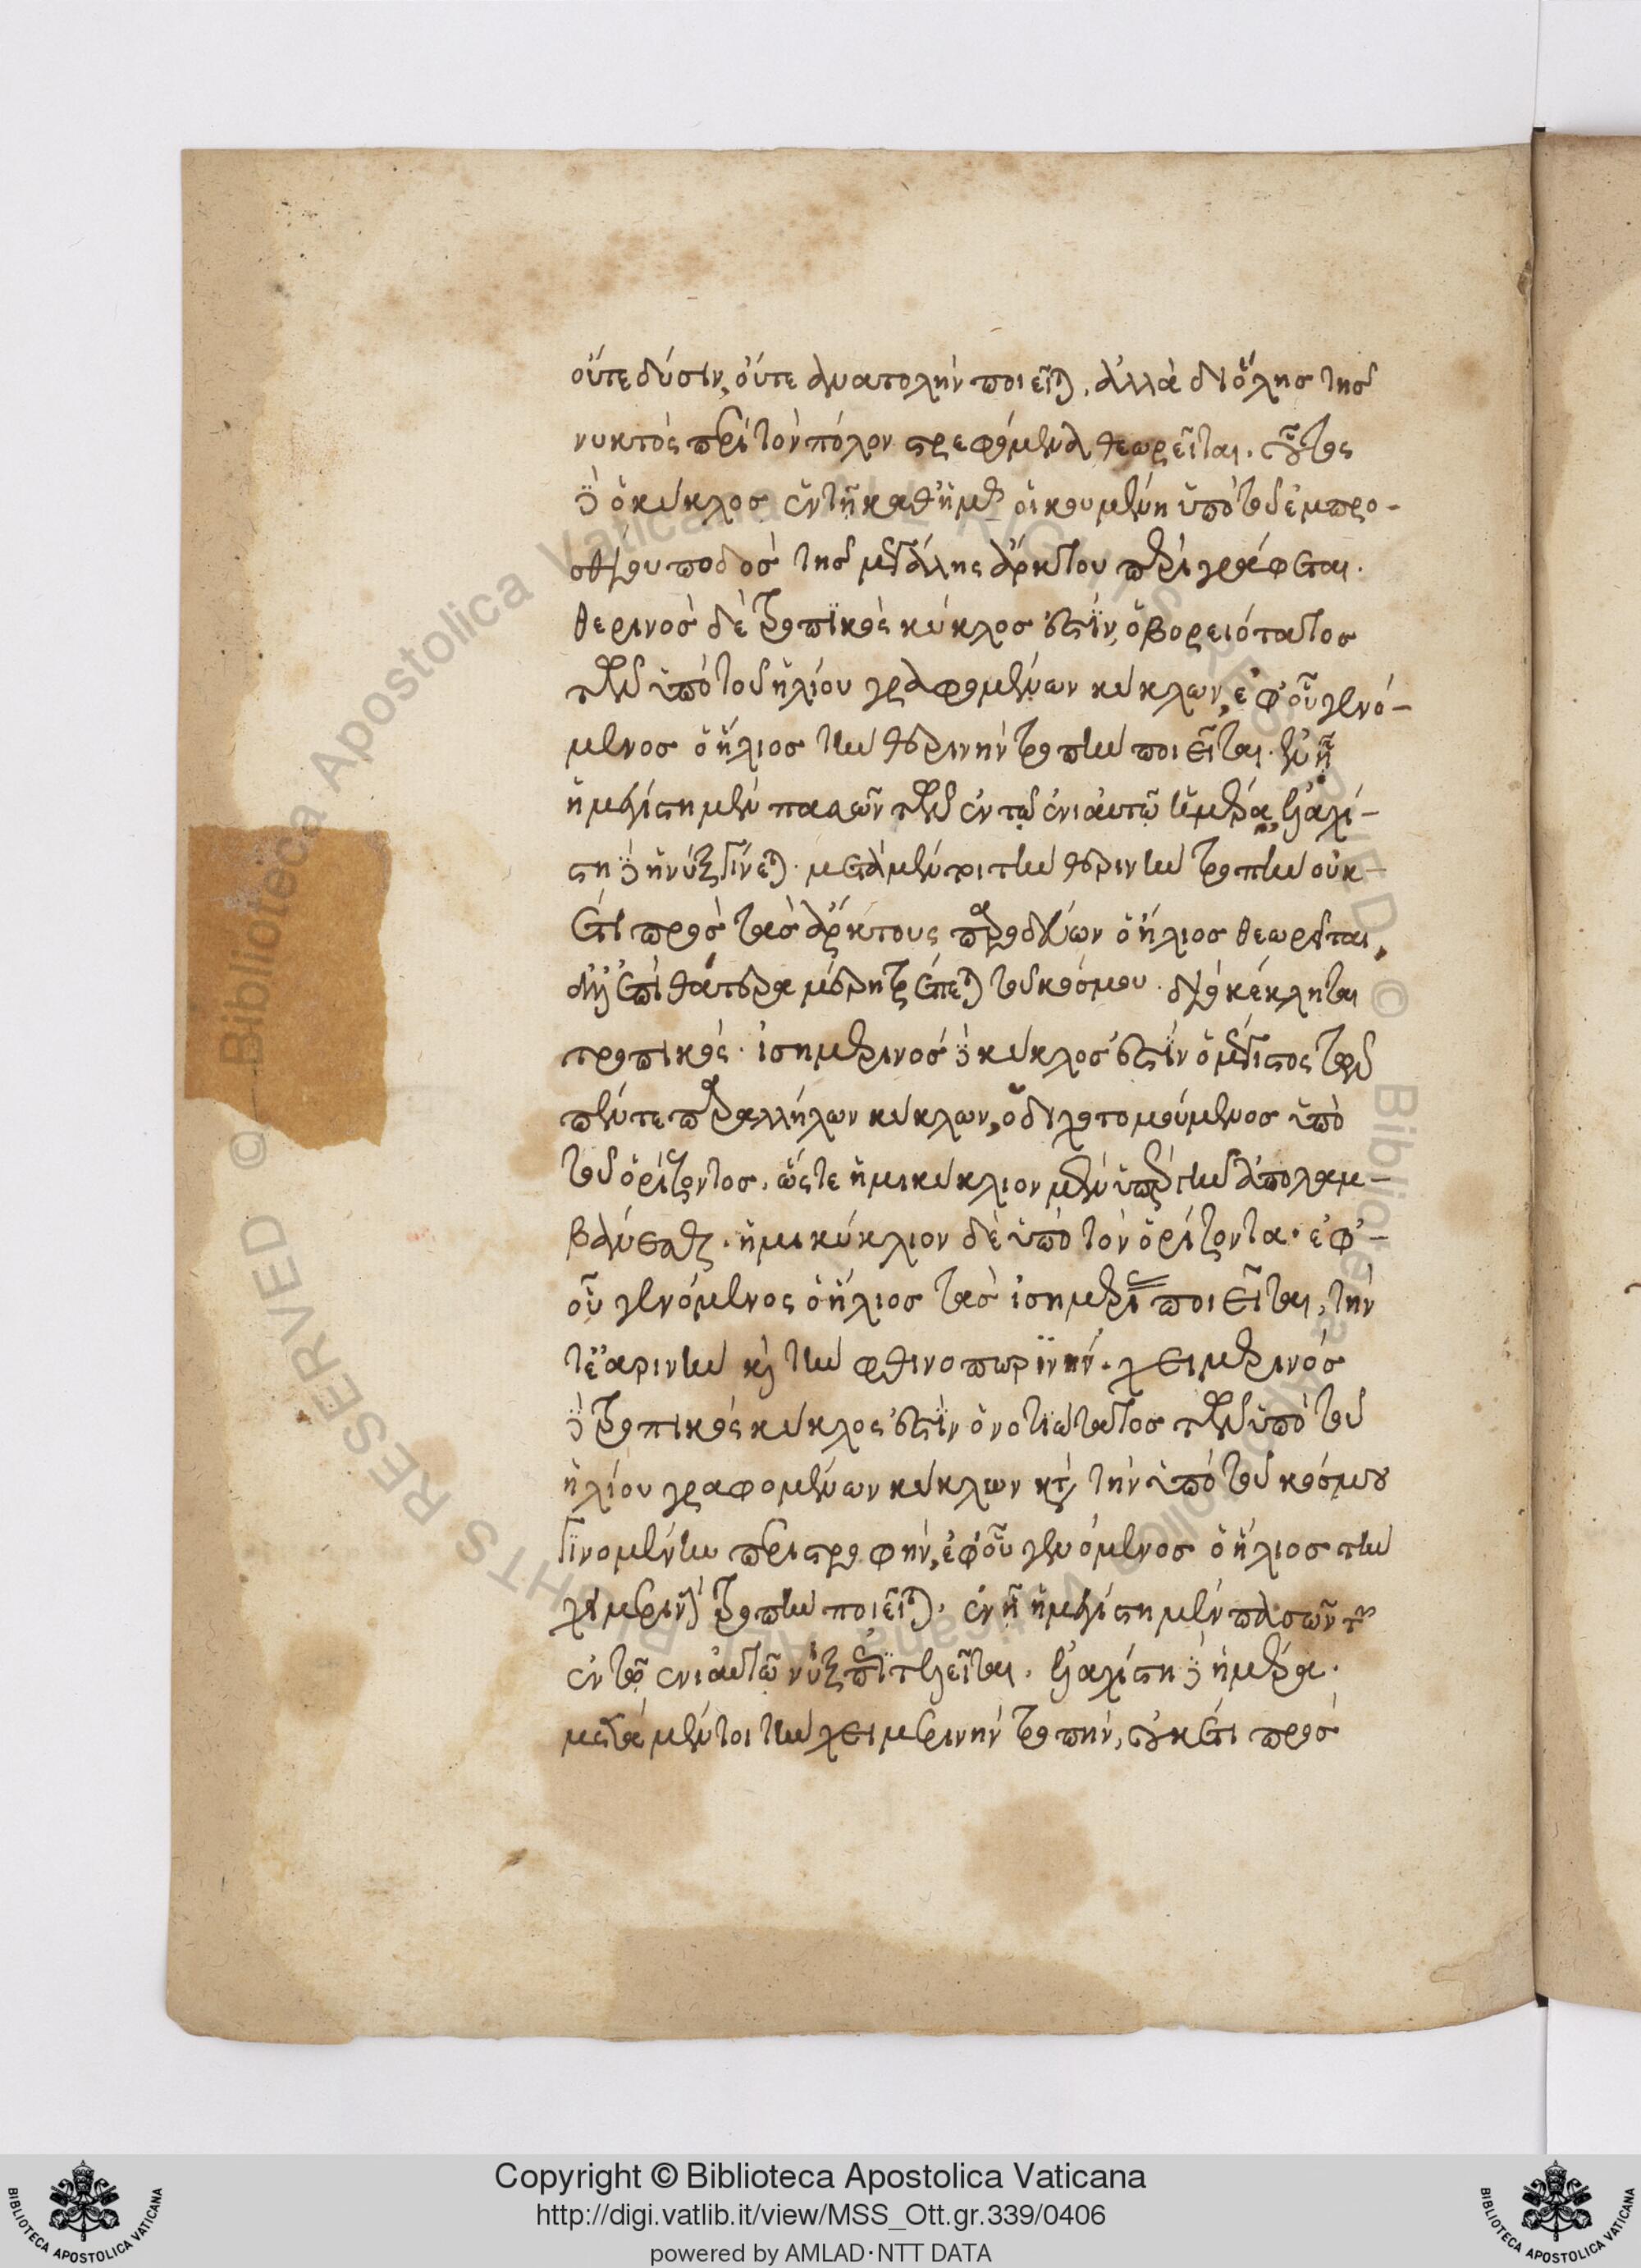 οὔτε δύσιν, οὔτε ἀνατολὴν ποιεῖται, ἀλλὰ δι' ὅλης τῆς
νυκτὸς περὶ τὸν πόλον στρεφόμενα θεωρεῖται. οὗτος
δὲ ὁ κύκλος ἐν τῇ καθ' ἡμᾶς οἰκουμένῃ ὑπὸ τοῦ ἐμπρο-
σθίου ποδὸς τῆς μεγάλης ἄρκτου περιγράφεται.
θερινὸς δὲ τροπικὸς κύκλος ἐστὶν, ὁ βορειότατος
τῶν ὑπὸ τοῦ ἡλίου γραφομένων κύκλων, ἐφ' οὗ γενό-
μενος ὁ ἥλιος τὴν θερινὴν τροπὴν ποιεῖται. ἐν ᾗ
ἡ μεγίστη μὲν πασῶν τῶν ἐν τῷ ἐνιαυτῷ ἡμέρα, ἐλαχί-
στη δὲ ἡ νὺξ γίνεται. μετὰ μέντοι τὴν θερινὴν τροπὴν οὐκ-
έτι πρὸς τὰς ἄρκτους παροδεύων ὁ ἥλιος θεωρεῖται,
ἀλλ' ἐπὶ θάτερα μέρη τρέπεται τοῦ κόσμου. διὸ κέκληται
τροπικός. ἰσημερινὸς δὲ κύκλος ἐστὶν ὁ μέγιστος τῶν
πέντε παραλλήλων κύκλων, ὁ διχοτομούμενος ὑπὸ
τοῦ ὁρίζοντος, ὥστε ἡμικύκλιον μὲν ὑπὲρ γῆν ἀπολαμ-
βάνεσθαι. ἡμικύκλιον δὲ ὑπὸ τὸν ὁρίζοντα. ἐφ'-
οὗ γενόμενος ὁ ἥλιος τὰς ἰσημερίας ποιεῖται, τήν
τε ἐαρινὴν καὶ τὴν φθινοπωρινήν. χειμερινὸς
δὲ τροπικὸς κύκλος ἐστὶν ὁ νοτιώτατος τῶν ὑπὸ τοῦ
ἡλίου γραφομένων κύκλων κατὰ τὴν ὑπὸ τοῦ κόσμου
γινομένην περιστροφήν, ἐφ' οὗ γενόμενος ὁ ἥλιος τὴν
χειμερινὴν τροπὴν ποιεῖται. ἐν ᾗ ἡ μεγίστη μὲν πασῶν τῶν
ἐν τῷ ἐνιαυτῷ νὺξ ἐπιτελεῖται. ἐλαχίστη δὲ ἡμέρα.
μετὰ μέντοι τὴν χειμερινὴν τροπήν, οὐκέτι πρὸς
Copyright © Biblioteca Apostolica Vaticana
http://digi.vatlib.it/view/MSS_Ott.gr.339/0406
powered by AMLAD·NTT DATA
BIBLIOTECA APOSTOLICA VATICANA
BIBLIOTECA APOSTOLICA VATICANA
© Biblioteca Apostolica Vaticana ALL RIGHTS RESERVED
© Biblioteca Apostolica Vaticana ALL RIGHTS RESERVED